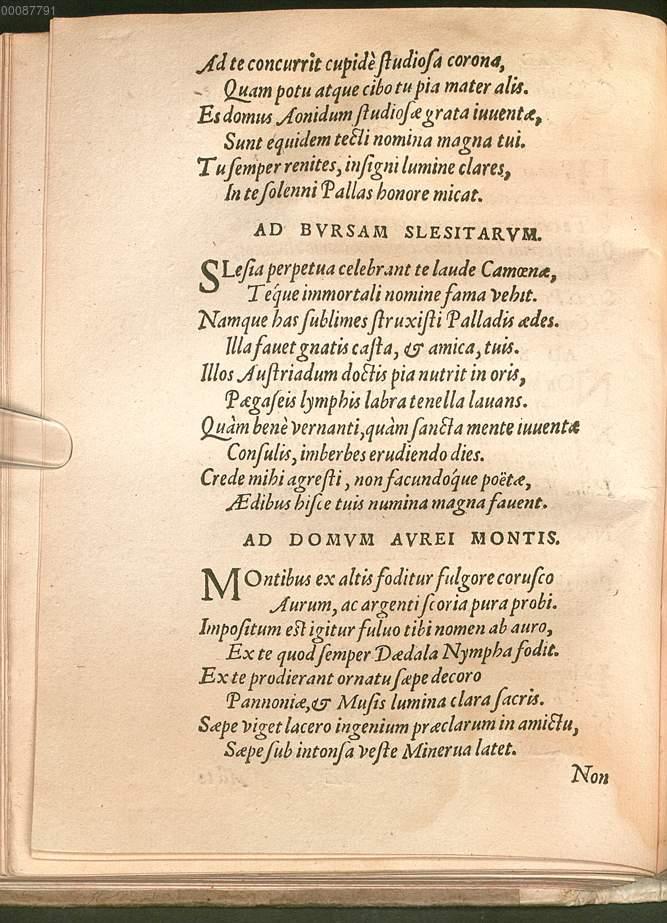 00087791
Ad te concurrit cupidè ſtudioſa corona,
Quam potu atque cibo tu pia mater alis.
Es domus Aonidum ſtudioſæ grata iuuentæ,
Sunt equidem tecti nomina magna tui.
Tu ſemper renites, inſigni lumine clares,
In te ſolenni Pallas honore micat.
AD BVRSAM SLESITARVM.
SLeſia perpetua celebrant te laude Camœnæ,
Téque immortali nomine fama vehit.
Namque has ſublimes ſtruxiſti Palladis ædes.
Illa fauet gnatis caſta, & amica, tuis.
Illos Auſtriadum doctis pia nutrit in oris,
Pægaſeis lymphis labra tenella lauans.
Quàm benè vernanti, quàm ſancta mente iuuentæ
Conſulis, imberbes erudiendo dies.
Crede mihi agreſti, non facundóque poëtæ,
Ædibus hiſce tuis numina magna fauent.
AD DOMVM AVREI MONTIS.
MOntibus ex altis foditur fulgore coruſco
Aurum, ac argenti ſcoria pura probi.
Impoſitum eſt igitur fuluo tibi nomen ab auro,
Ex te quod ſemper Dædala Nympha fodit.
Ex te prodierant ornatu ſæpe decoro
Pannoniæ, & Muſis lumina clara ſacris.
Sæpe viget lacero ingenium præclarum in amictu,
Sæpe ſub intonſa veſte Minerua latet.
Non